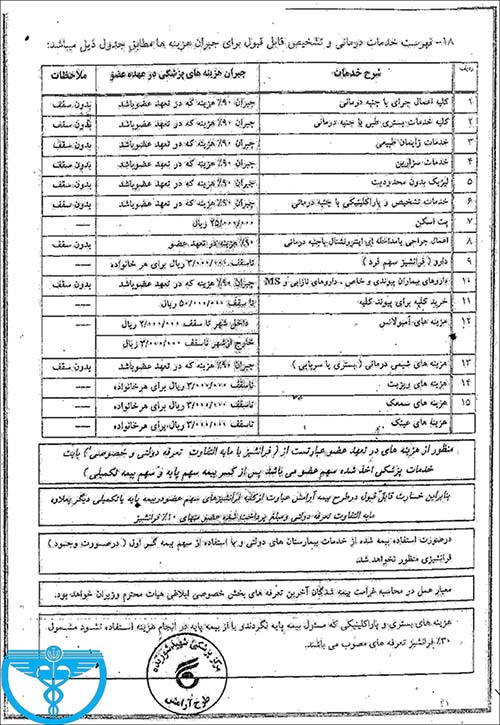 ۱۸- فهرست خدمات درمانی و تشخیص قابل قبول برای جبران هزینه ها مطابق جدول ذیل میباشد:
ردیف شرح خدمات جبران هزینه های پزشکی در عهده عضو ملاحظات
۱ کلیه اعمال جراحی با جنبه درمانی جبران ۹۰٪ هزینه که در تعهد عضوباشد بدون سقف
۲ کلیه خدمات بستری طبی با جنبه درمانی جبران ۹۰٪ هزینه که در تعهد عضوباشد بدون سقف
۳ خدمات زایمان طبیعی جبران ۹۰٪ هزینه که در تعهد عضوباشد بدون سقف
۴ خدمات سزارین جبران ۹۰٪ هزینه که در تعهد عضوباشد بدون سقف
۵ لیزیک بدون محدودیت جبران ۹۰٪ هزینه که در تعهد عضوباشد بدون سقف
۶ خدمات تشخیص و پاراکلینیکی با جنبه درمانی جبران ۹۰٪ هزینه که در تعهد عضوباشد بدون سقف
۷ پت اسکن ۲۵/۰۰۰/۰۰۰ ریال ----
۸ اعمال جراحی بامداخله ای اینترونشنال باجنبه درمانی ۹۰٪ هزینه در تعهد عضو بدون سقف
۹ دارو ( فرانشیز سهم فرد ) تاسقف ۳/۰۰۰/۰۰۰ ریال برای هر خانواده ----
۱۰ داروهای بیماران پیوندی و خاص ، داروهای نازایی و MS جبران ۹۰٪ هزینه که در تعهد عضوباشد بدون سقف
۱۱ خرید کلیه برای پیوند کلیه تا سقف ۵۰/۰۰۰/۰۰۰ ریال ----
۱۲ هزینه های آمبولانس داخلی شهر تا سقف ۲/۰۰۰/۰۰۰ ریال ----
خارج ازشهر تاسقف ۳/۰۰۰/۰۰۰ ریال
۱۳ هزینه های شیمی درمانی ( بستری یا سرپایی ) جبران ۹۰٪ هزینه که در تعهد عضوباشد بدون سقف
۱۴ هزینه های ویزیت تاسقف ۳/۰۰۰/۰۰۰ ریال برای هرخانواده ----
۱۵ هزینه های سمعک تاسقف ریال برای هرخانواده ----
هزینه های عینک تاسقف ریال برای هرخانواده ----
منظور از هزینه های در تعهد عضو عبارتست از ( فرانشیز یا مابه التفاوت تعرفه دولتی و خصوصی ) بابت
خدمات پزشکی اخذ شده سهم عضو می باشد، پس از کسر بیمه سهم پایه و سهم بیمه تکمیلی )
بنابراین خسارت قابل قبول درطرح بیمه آرامش عبارت ازکلیه فرانشیزهای سهم عضودربیمه پایه یاتکمیلی دیگر بعلاوه
مابه التفاوت تعرفه دولتی ومبلغ پرداخت شده عضو منهای ۱۰٪ فرانشیز
درصورت استفاده بیمه شده از خدمات بیمارستان های دولتی و یا استفاده از سهم بیمه گر اول ( درصورت وجود )
فرانشیزی منظور نخواهد شد.
معیار عمل در محاسبه غرامت بیمه شدگان آخرین تعرفه های بخش خصوصی ابلاغی هیات محترم وزیران خواهد بود.
هزینه های بستری و پاراکلینیکی که مشمول بیمه پایه نگردند و یا از بیمه پایه در انجام هزینه استفاده نشود مشمول
۳۰٪ فرانشیز تعرفه های مصوب می باشند.
مرکز پزشکی
طرح آرامش
۲۱